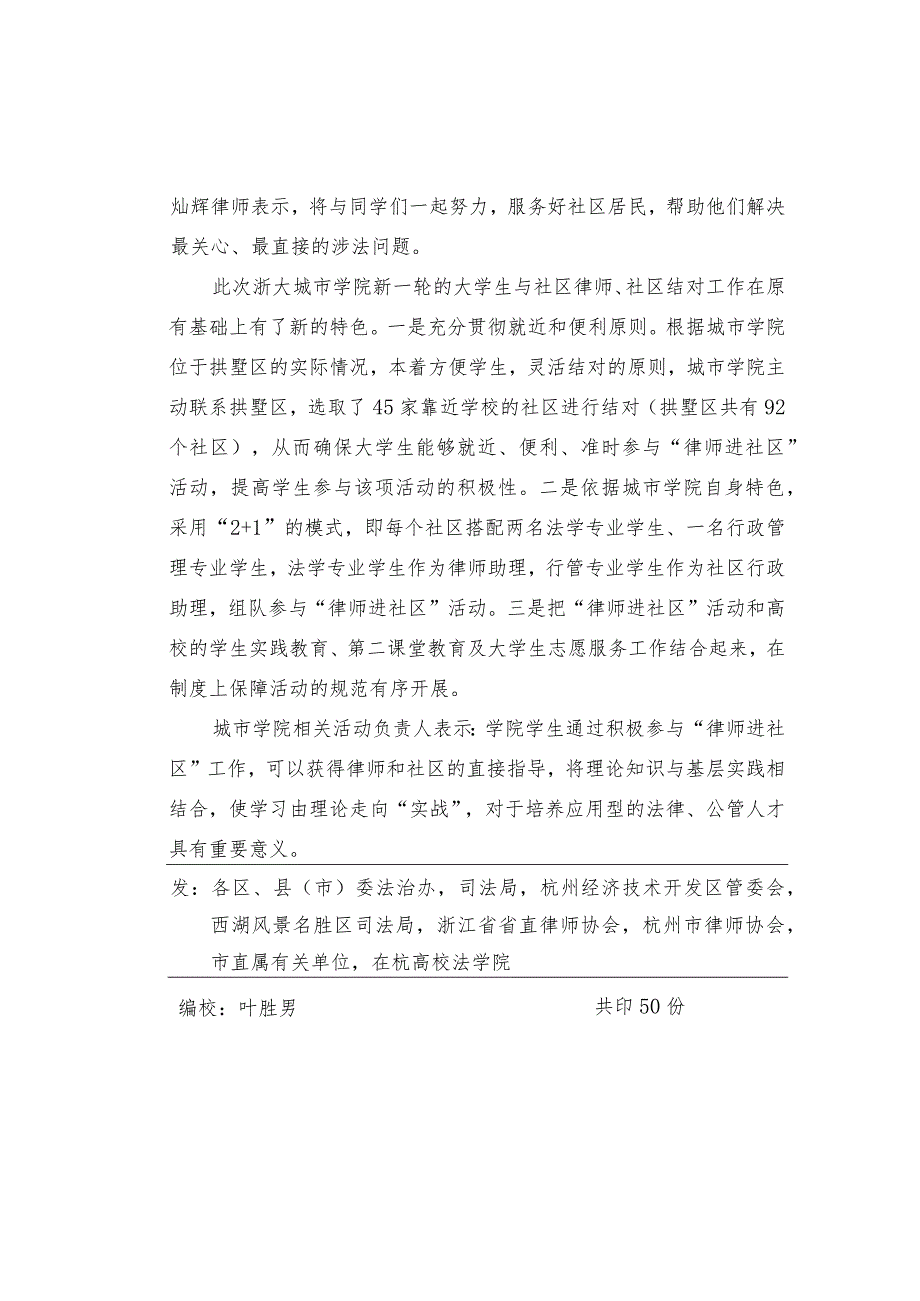 灿辉律师表示，将与同学们一起努力，服务好社区居民，帮助他们解决
最关心、最直接的涉法问题。
此次浙大城市学院新一轮的大学生与社区律师、社区结对工作在原
有基础上有了新的特色。一是充分贯彻就近和便利原则。根据城市学院
位于拱墅区的实际情况，本着方便学生，灵活结对的原则，城市学院主
动联系拱墅区，选取了 45 家靠近学校的社区进行结对（拱墅区共有 92
个社区），从而确保大学生能够就近、便利、准时参与“律师进社区”
活动，提高学生参与该项活动的积极性。二是依据城市学院自身特色，
采用“2+1”的模式，即每个社区搭配两名法学专业学生、一名行政管
理专业学生，法学专业学生作为律师助理，行管专业学生作为社区行政
助理，组队参与“律师进社区”活动。三是把“律师进社区”活动和高
校的学生实践教育、第二课堂教育及大学生志愿服务工作结合起来，在
制度上保障活动的规范有序开展。
城市学院相关活动负责人表示：学院学生通过积极参与“律师进社
区”工作，可以获得律师和社区的直接指导，将理论知识与基层实践相
结合，使学习由理论走向“实战”，对于培养应用型的法律、公管人才
具有重要意义。
发：各区、县（市）委法治办，司法局，杭州经济技术开发区管委会，
西湖风景名胜区司法局，浙江省省直律师协会，杭州市律师协会，
市直属有关单位，在杭高校法学院
编校：叶胜男 共印 50 份